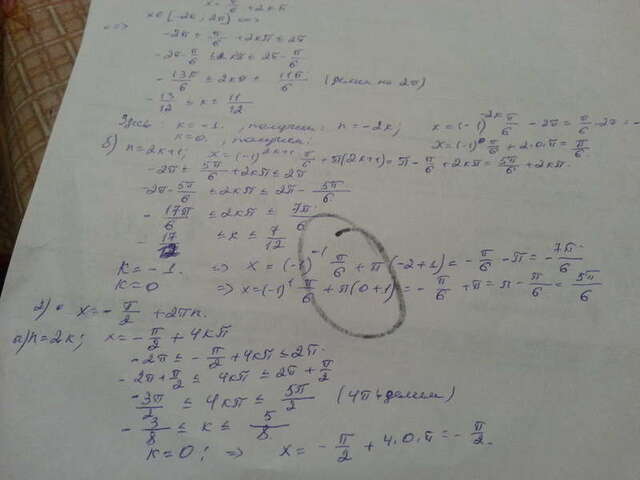 x = π/6 + 2kπ
x ∈ [-2π; 2π] <=>
<=> -2π ≤ π/6 + 2kπ ≤ 2π
-2π - π/6 ≤ 2kπ ≤ 2π - π/6
- 13π/6 ≤ 2kπ ≤ 11π/6 (делим на 2π)
- 13/12 ≤ k ≤ 11/12
Здесь: k = -1. , получим: n = -2k; x = (-1)^-2k π/6 - 2π = π/6 - 2π = -
k = 0. , получим. x = (-1)^0 π/6 + 2·0·π = π/6.
б) n = 2k+1; x = (-1)^2k+1 · π/6 + π(2k+1) = π - π/6 + 2kπ = 5π/6 + 2kπ.
-2π ≤ 5π/6 + 2kπ ≤ 2π
-2π - 5π/6 ≤ 2kπ ≤ 2π - 5π/6
- 17π/6 ≤ 2kπ ≤ 7π/6
- 17/12 ≤ k ≤ 7/12
k = -1. => x = (-1)^-1 π/6 + π(-2+1) = - π/6 - π = - 7π/6
k = 0 => x = (-1)^1 π/6 + π(0+1) = - π/6 + π = π - π/6 = 5π/6
2) x = - π/2 + 2πn.
а) n = 2k; x = - π/2 + 4kπ
-2π ≤ - π/2 + 4kπ ≤ 2π.
-2π + π/2 ≤ 4kπ ≤ 2π + π/2
- 3π/2 ≤ 4kπ ≤ 5π/2 (4π делим)
- 3/8 ≤ k ≤ 5/8
k = 0; => x = - π/2 + 4·0·π = - π/2.